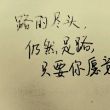 路的尽头,
仍然是路,
只要你愿意